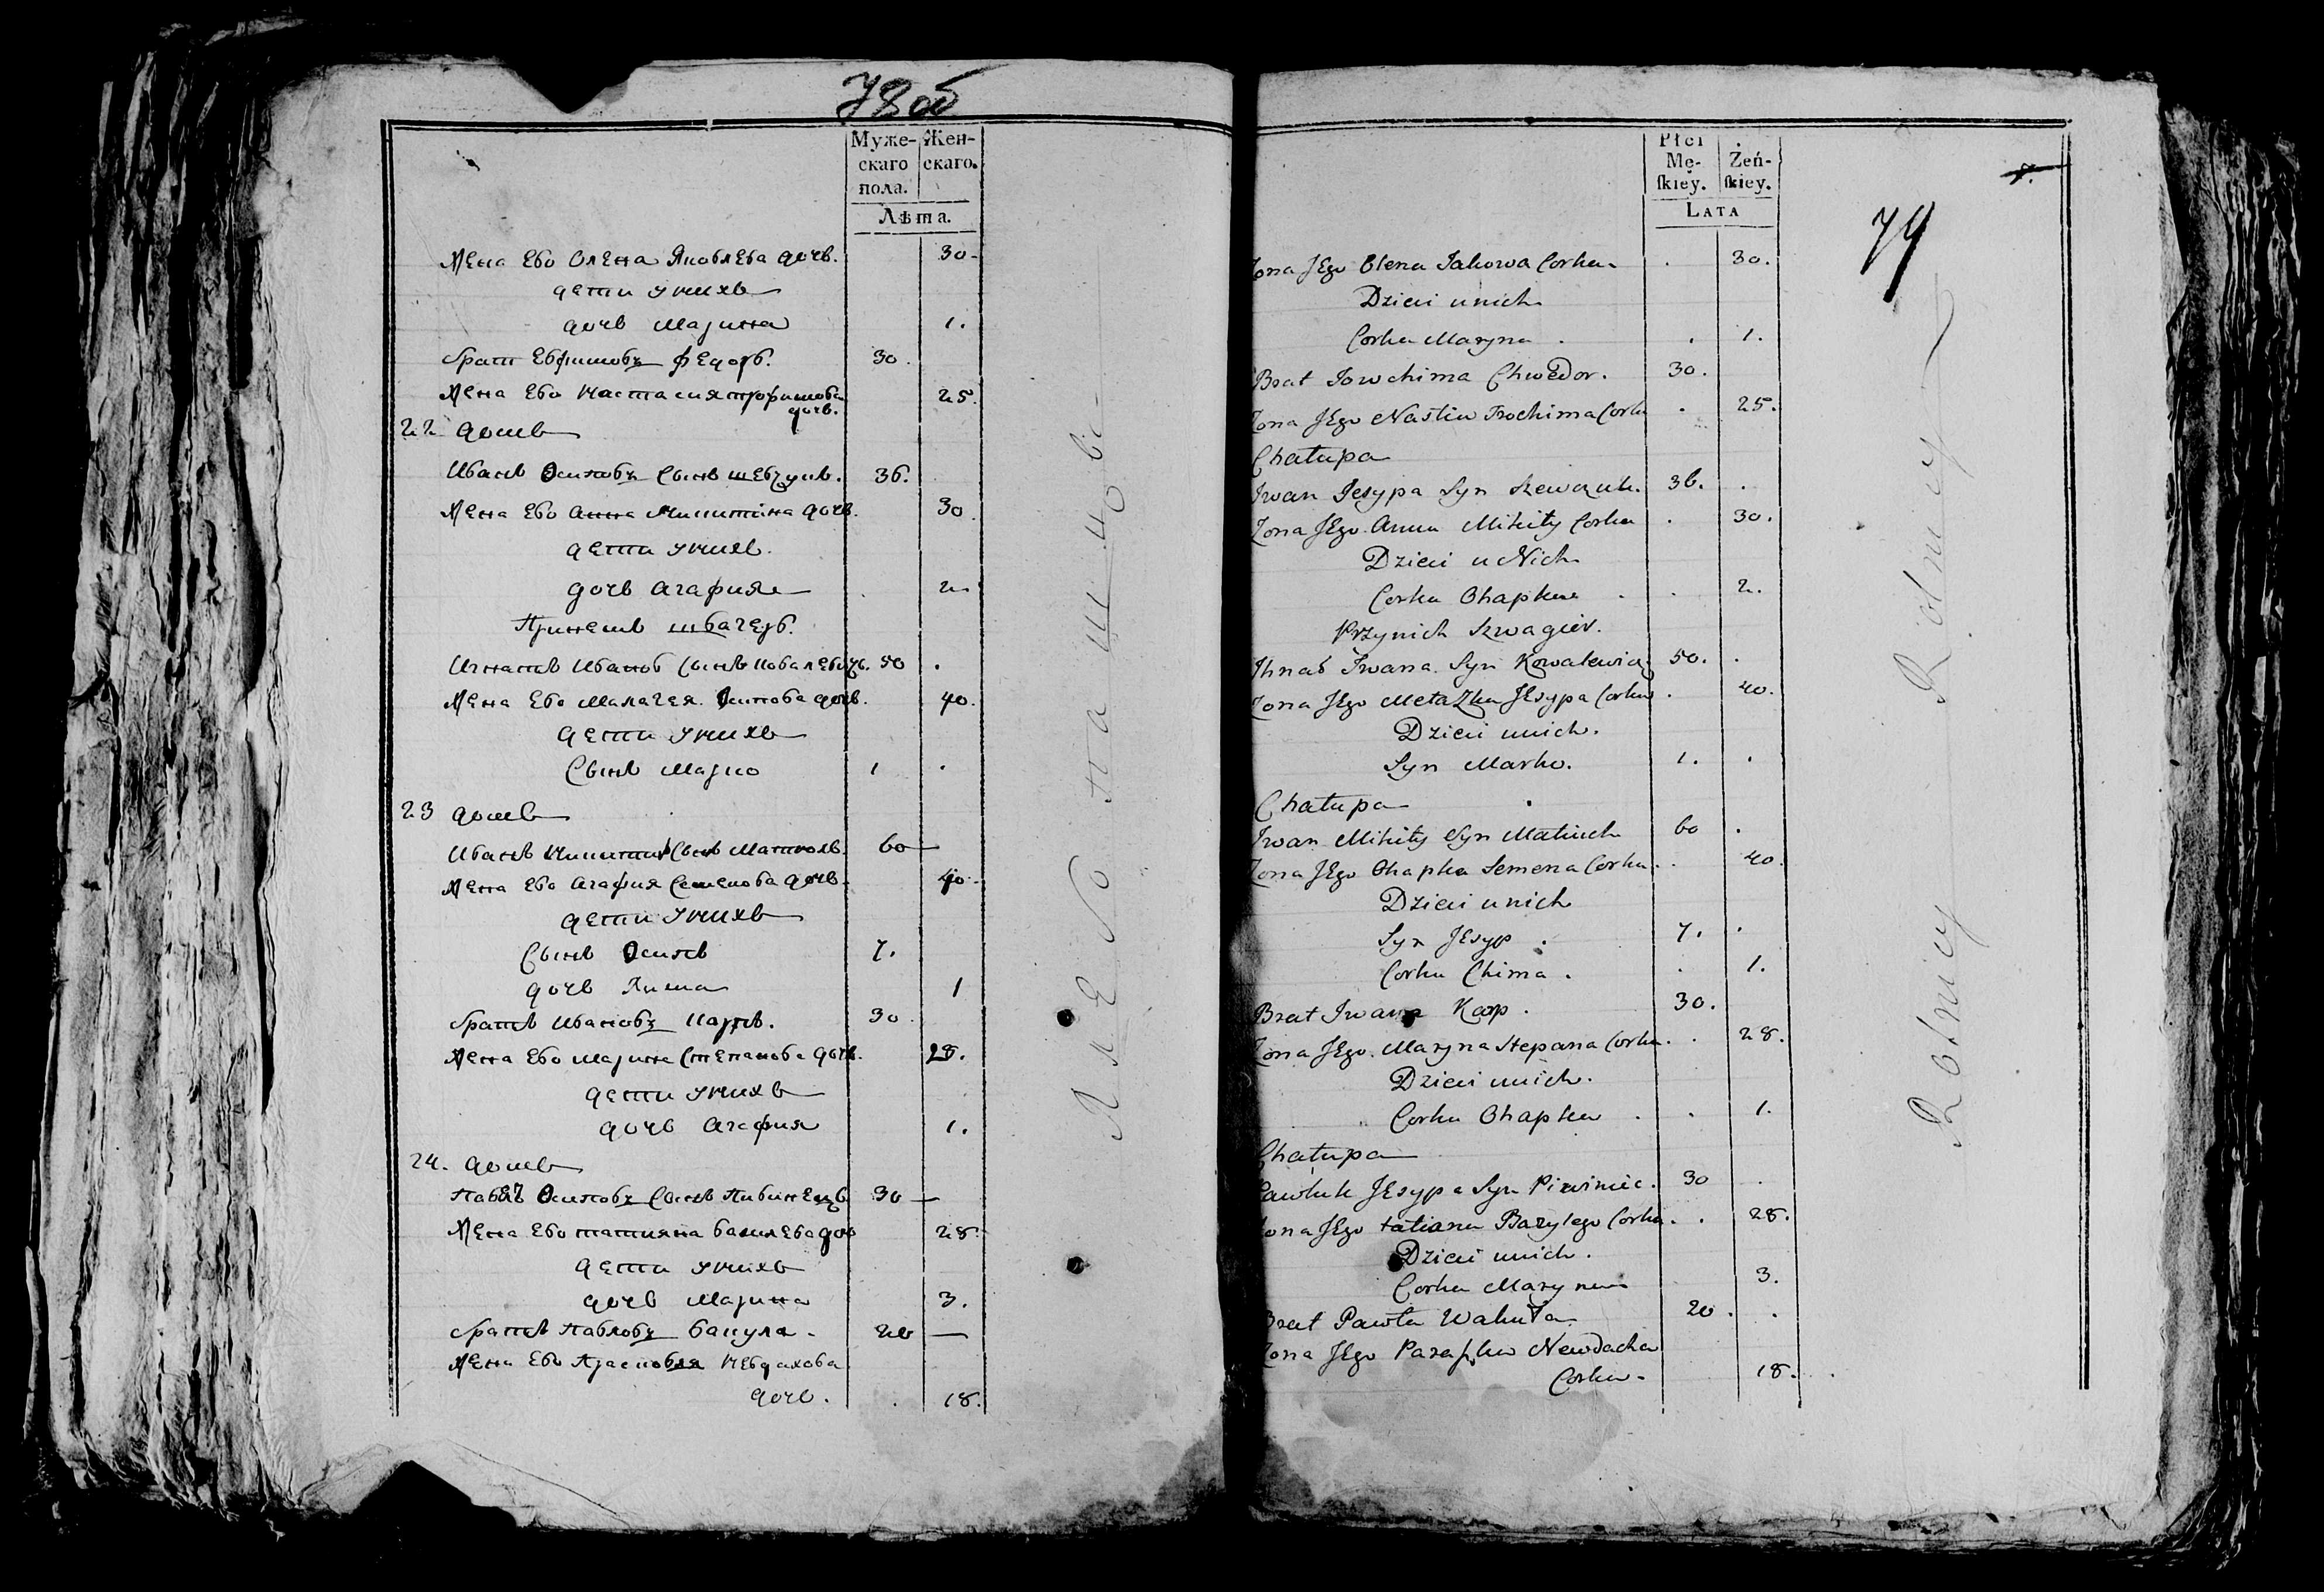 78об
Муже-
скаго
пола.
Жен-
скаго.
Лѣта.
жена ево Олена Яковлева дочь. 30
дети у нихъ
дочь Марина 1.
братъ Евфимовъ Федоръ. 30.
жена ево Настасия трофимова дочь. 25.
22 домъ
Иванъ Осиповъ сынъ шевчукъ. 36.
жена ево Анна Микитина дочь. 30
дети у нихъ.
дочь Агафия 2
При немъ швагеръ.
Игнатъ Иванов сынъ Ковалевичъ. 50 .
жена ево Малагея Осипова дочь. 40.
дети у нихъ
сынъ Марко 1 .
23 домъ
Иванъ Микитинъ сынъ 60
жена ево Агафия Семенова дочь. 40.
дети у нихъ
сынъ Осипъ 7.
дочь 1
братъ Ивановъ Карпъ. 30
жена ево Марина Степанова дочь. 28.
дети у нихъ
дочь Агафия 1.
24. домъ
Осиповъ сынъ 30
жена ево татияна дочь 28.
дети у нихъ
дочь Марина 3.
братъ Павловъ Вакула. 20
жена ево Невдахова
дочь. 18.
Płci
Mę-
ſkiey.
Żeń-
ſkiey.
Lata
79
Zona Jego Olena Jakowa Corka. . 30.
Dzieci u nich
Corka Maryna . . 1.
Brat Jowchima Chwedor. 30.
Zona Jego Nastia Trochima Cork . 25.
Chałupa
Iwan Jesypa Syn Szewczuk. 36. .
Zona Jego Anna Mikity Corka . 30.
Dzieci u Nich
Corka Ohapka . . 2.
Przynich Szwagier.
Ihnat Iwana Syn Kowalewicz 50. .
Zona Jego Małazka Jesypa Corka . 40.
Dzieci unich.
Syn Marko. 1. .
Chałupa
Iwan Mikity Syn 60 .
Zona Jego Ohapka Semena Corka . . 40.
Dzieci unich
Syn Jesyp . 7. .
Corka Chima . . 1.
Brat Iwana Karp . 30.
Zona Jego Maryna Stepana Corka . . 28.
Dzieci unich.
Corka Ohapka . . 1.
Chałupa
Pawluk Jesypa Syn 30 .
Zona Jego tatiana Bazylego Corka . . 28.
Dzieci unich.
Corka Maryna 3.
Brat Pawła Wakuła 20. .
Zona Jego Paraska Newdacha
Corka. 18.